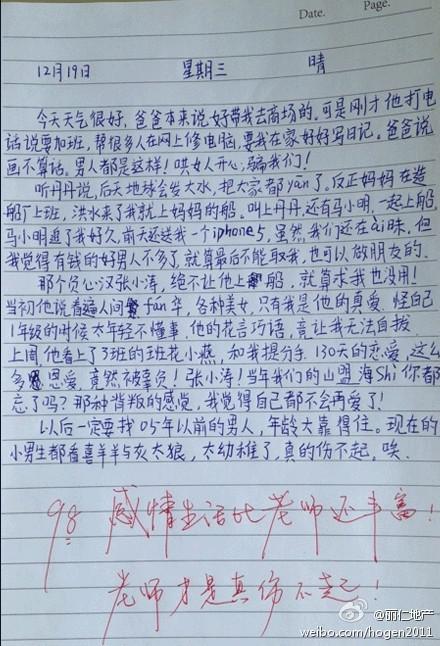 Date. Page.
12月19日 星期三 晴
今天天气很好,爸爸本来说好带我去商场的。可是刚才他打电
话说要加班,帮很多人在网上修电脑,要我在家好好写日记。爸爸说
画不算话。男人都是这样!哄女人开心,骗我们!
听丹丹说,后天地球会发大水,把大家都yān了。反正妈妈在造
船厂上班,洪水来了我就上妈妈的船。叫上丹丹,还有马小明,一起上船。
马小明追了我好久,前天还送我一个iphone5,虽然我们还在ài昧,但
我觉得有钱的好男人不多了,就算最后不能取我,也可以做朋友的。
那个负心汉张小涛,绝不让他上船,就算求我也没用!
当初他说看遍人间fán华,各种美女,只有我是他的真爱。怪自己
1年级的时候太年轻不懂事,他的花言巧语,竟让我无法自拔
上周他看上了3班的班花小燕,和我提分手。130天的恋爱,这么
多恩爱,竟然被辜负!张小涛!当年我们的山盟海Shì你都
忘了吗?那种背叛的感觉,我觉得自己都不会再爱了!
以后一定要找05年以前的男人,年龄大靠得住。现在的
小男生都看喜羊羊与灰太狼,太幼稚了,真的伤不起,唉。
98 感情生活比老师还丰富!
老师才是真伤不起!
@丽仁地产
weibo.com/hogen2011